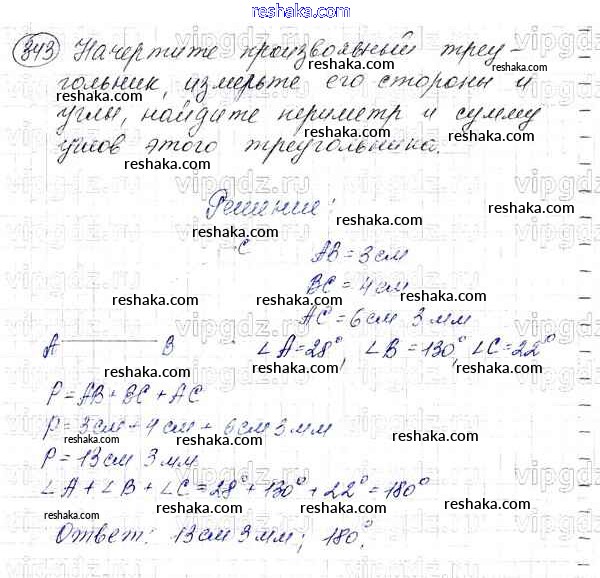 reshaka.com
343 Начертите произвольный треу-
reshaka.com
гольник, измерьте его стороны и
reshaka.com reshaka.com
углы, найдите периметр и сумму
reshaka.com
углов этого треугольника.
reshaka.com reshaka.com
vipgdz.ru vipgdz.ru vipgdz
Решение:
reshaka.com reshaka.com
vipgdz.ru vipgdz
C AB = 3 см
reshaka.com
BC = 4 см
reshaka.com reshaka.com reshaka.com
AC = 6 см 3 мм
vipgdz.ru vipgdz.ru vipgdz
A B ∠A = 28°, ∠B = 130°, ∠C = 22°
reshaka.com reshaka.com reshaka.com
P = AB + BC + AC
reshaka.com
P = 3 см + 4 см + 6 см 3 мм
reshaka.com reshaka.com reshaka.com
P = 13 см 3 мм
reshaka.com
∠A + ∠B + ∠C = 28° + 130° + 22° = 180°
reshaka.com reshaka.com reshaka.com
Ответ: 13 см 3 мм; 180°.
reshaka.com reshaka.com